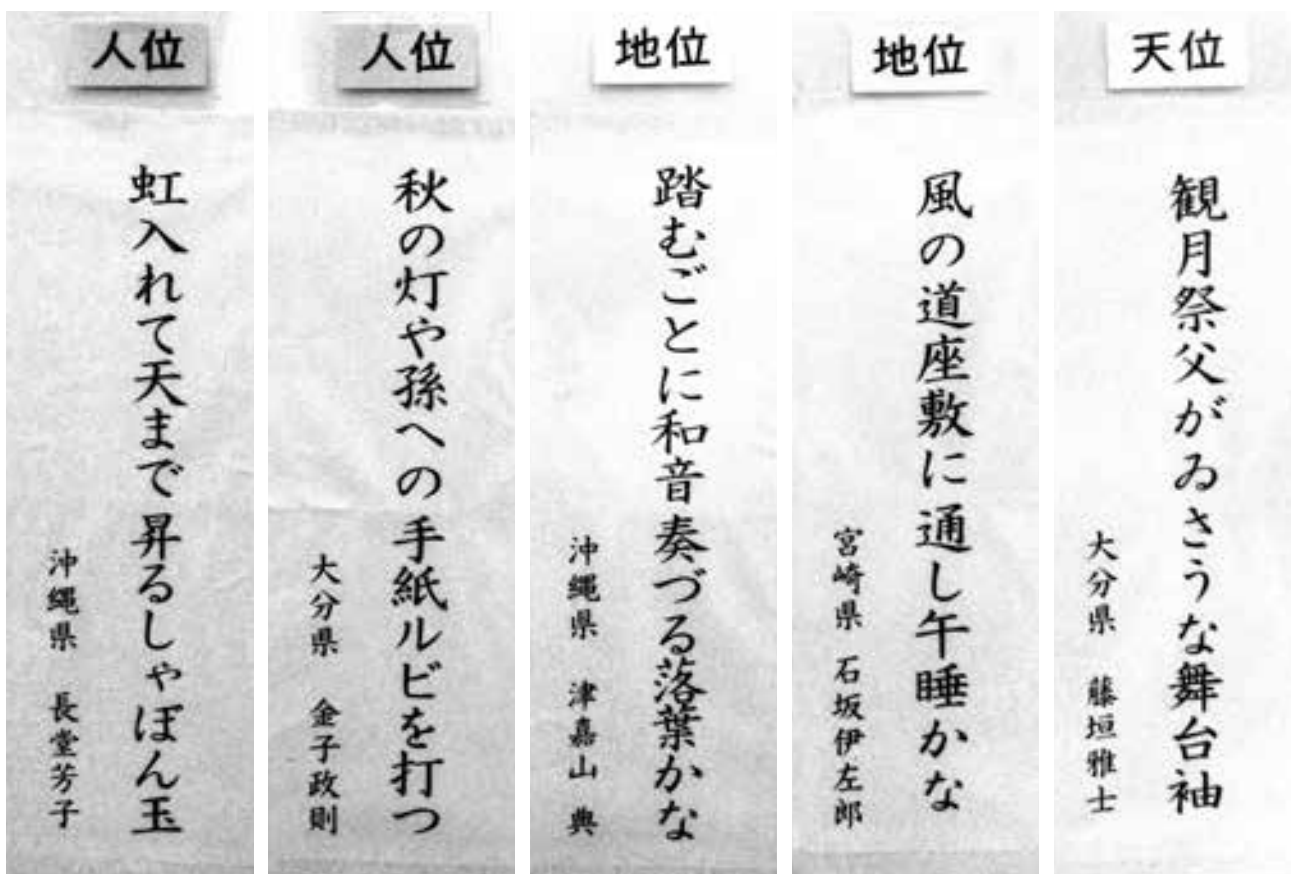 天位
観月祭父がゐさうな舞台袖
大分県 藤垣雅士
地位
風の道座敷に通し午睡かな
宮崎県 石坂伊左郎
地位
踏むごとに和音奏づる落葉かな
沖縄県 津嘉山 典
人位
秋の灯や孫への手紙ルビを打つ
大分県 金子政則
人位
虹入れて天まで昇るしゃぼん玉
沖縄県 長堂芳子